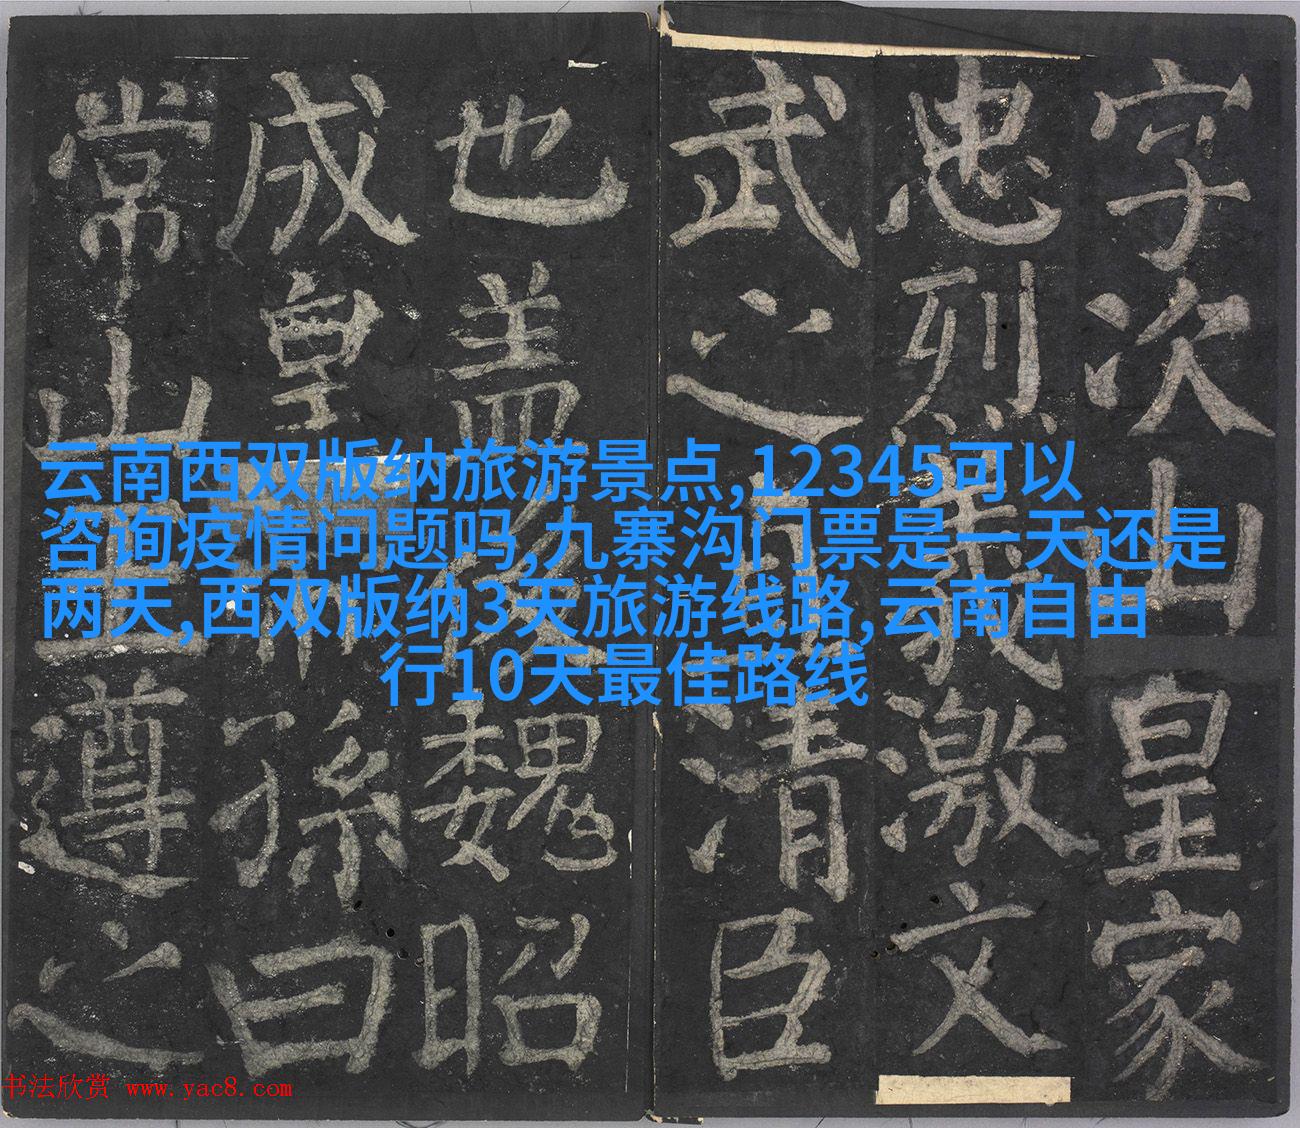 字次山皇家
忠烈義激文
武之直清臣
也盖後魏昭
成皇帝孫曰
常山王遵之
云南西双版纳旅游景点,12345可以
咨询疫情问题吗,九寨沟门票是一天还是
两天,西双版纳3天旅游线路,云南自由
行10天最佳路线
书法欣赏 www.yac8.com